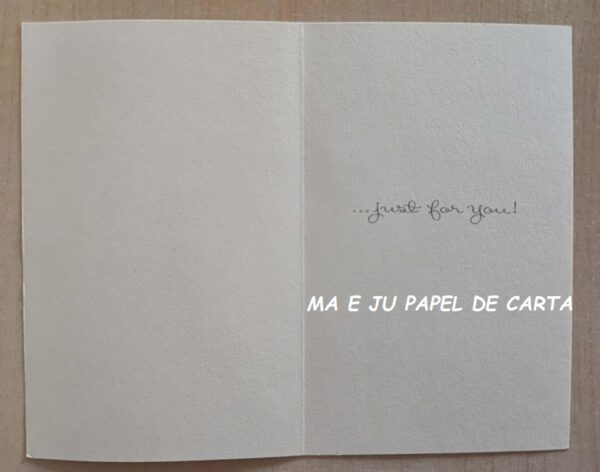 ...just for you!
MA E JU PAPEL DE CARTA